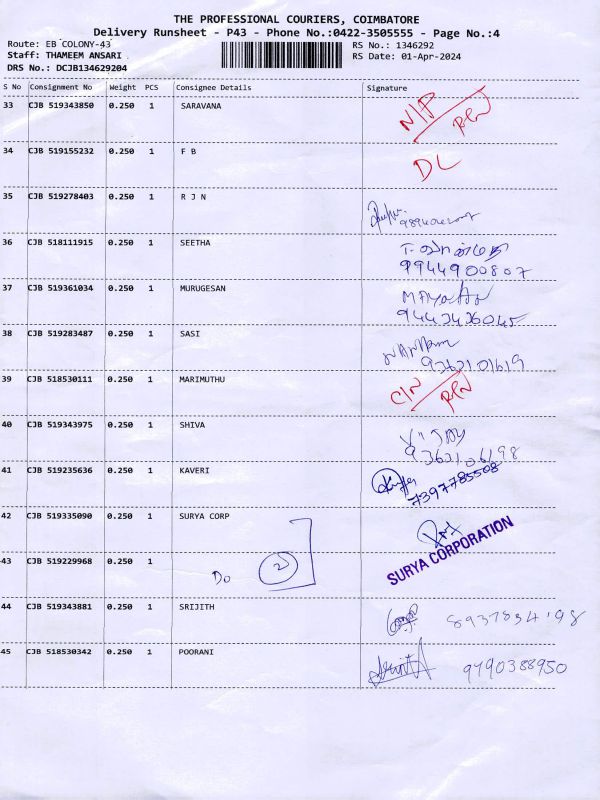 THE PROFESSIONAL COURIERS, COIMBATORE
Delivery Runsheet - P43 - Phone No.:0422-3505555 - Page No.:4
Route: EB COLONY-43 RS No.: 1346292
Staff: THAMEEM ANSARI RS Date: 01-Apr-2024
DRS No.: DCJB134629204
S No Consignment No Weight PCS Consignee Details Signature
33 CJB 519343850 0.250 1 SARAVANA N/P
34 CJB 519155232 0.250 1 F B DL
35 CJB 519278403 0.250 1 R J N
36 CJB 518111915 0.250 1 SEETHA
9944900807
37 CJB 519361034 0.250 1 MURUGESAN
9443436045
38 CJB 519283487 0.250 1 SASI
9363101619
39 CJB 518530111 0.250 1 MARIMUTHU C/N
40 CJB 519343975 0.250 1 SHIVA VIJAY
9363106198
41 CJB 519235636 0.250 1 KAVERI
7397785508
42 CJB 519335090 0.250 1 SURYA CORP
SURYA CORPORATION
43 CJB 519229968 0.250 1 Do 2
44 CJB 519343881 0.250 1 SRIJITH
45 CJB 518530342 0.250 1 POORANI 9790388950